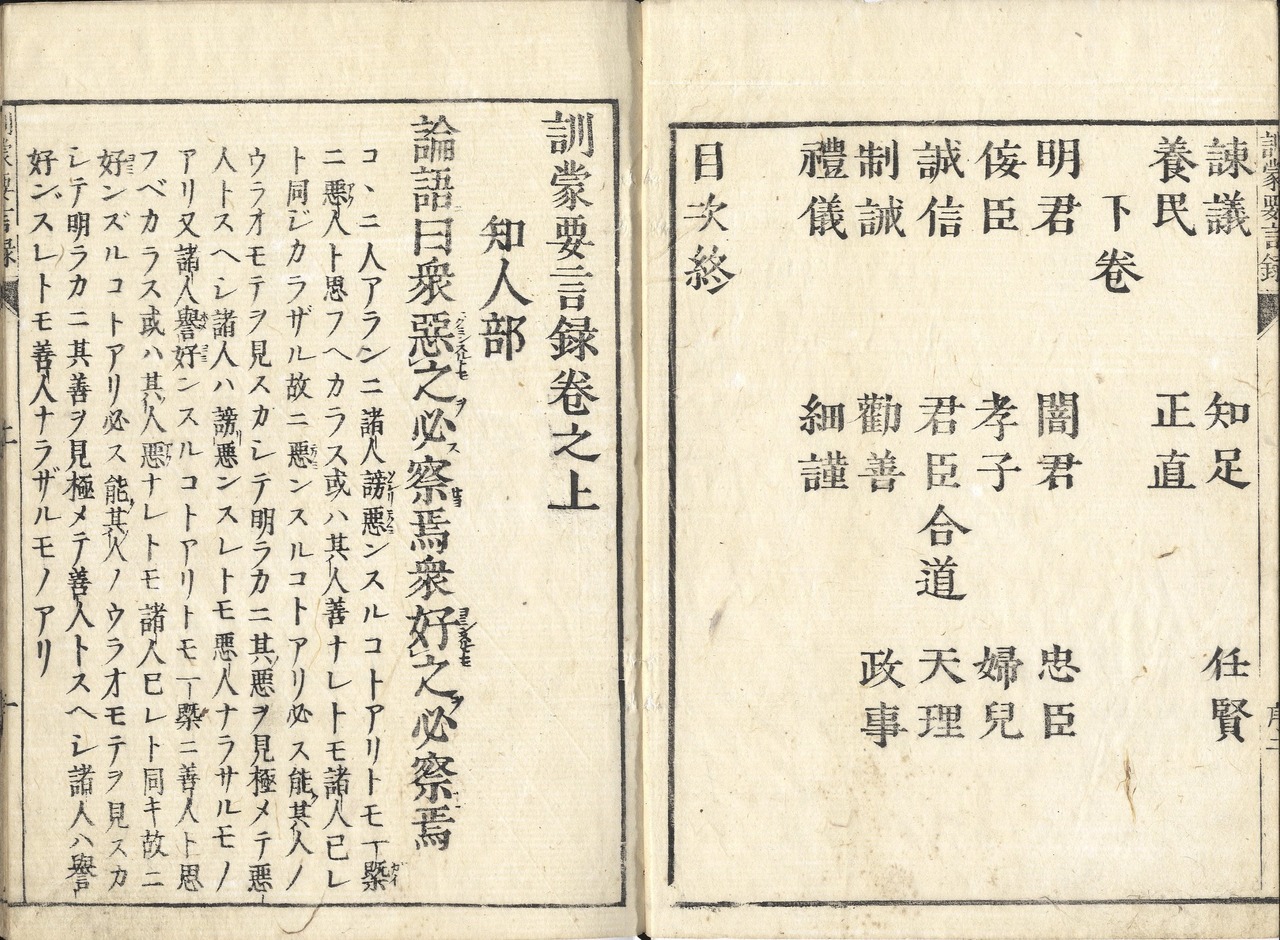 諫議 知足 任賢
養民 正直
下卷
明君 闇君 忠臣
侫臣 孝子 婦兒
誠信 君臣合道 天理
制誡 勸善 政事
禮儀 細謹
目次終
訓蒙要言録卷之上
知人部
論語曰衆惡之必察焉衆好之必察焉
コヽニ人アランニ諸人謗悪ンスルコトアリトモ一槩
ニ悪人ト思フヘカラス或ハ其人善ナレトモ諸人已レ
ト同ジカラザル故ニ悪ンスルコトアリ必ス能其人ノ
ウラオモテヲ見スカシテ明ラカニ其悪ヲ見極メテ悪
人トスヘシ諸人ハ謗悪ンスレトモ悪人ナラサルモノ
アリ又諸人譽好ンスルコトアリトモ一槩ニ善人ト思
フベカラス或ハ其人悪ナレトモ諸人已レト同キ故ニ
好ンズルコトアリ必ス能其人ノウラオモテヲ見スカ
シテ明ラカニ其善ヲ見極メテ善人トスヘシ諸人ハ譽
好ンズスレトモ善人ナラザルモノアリ